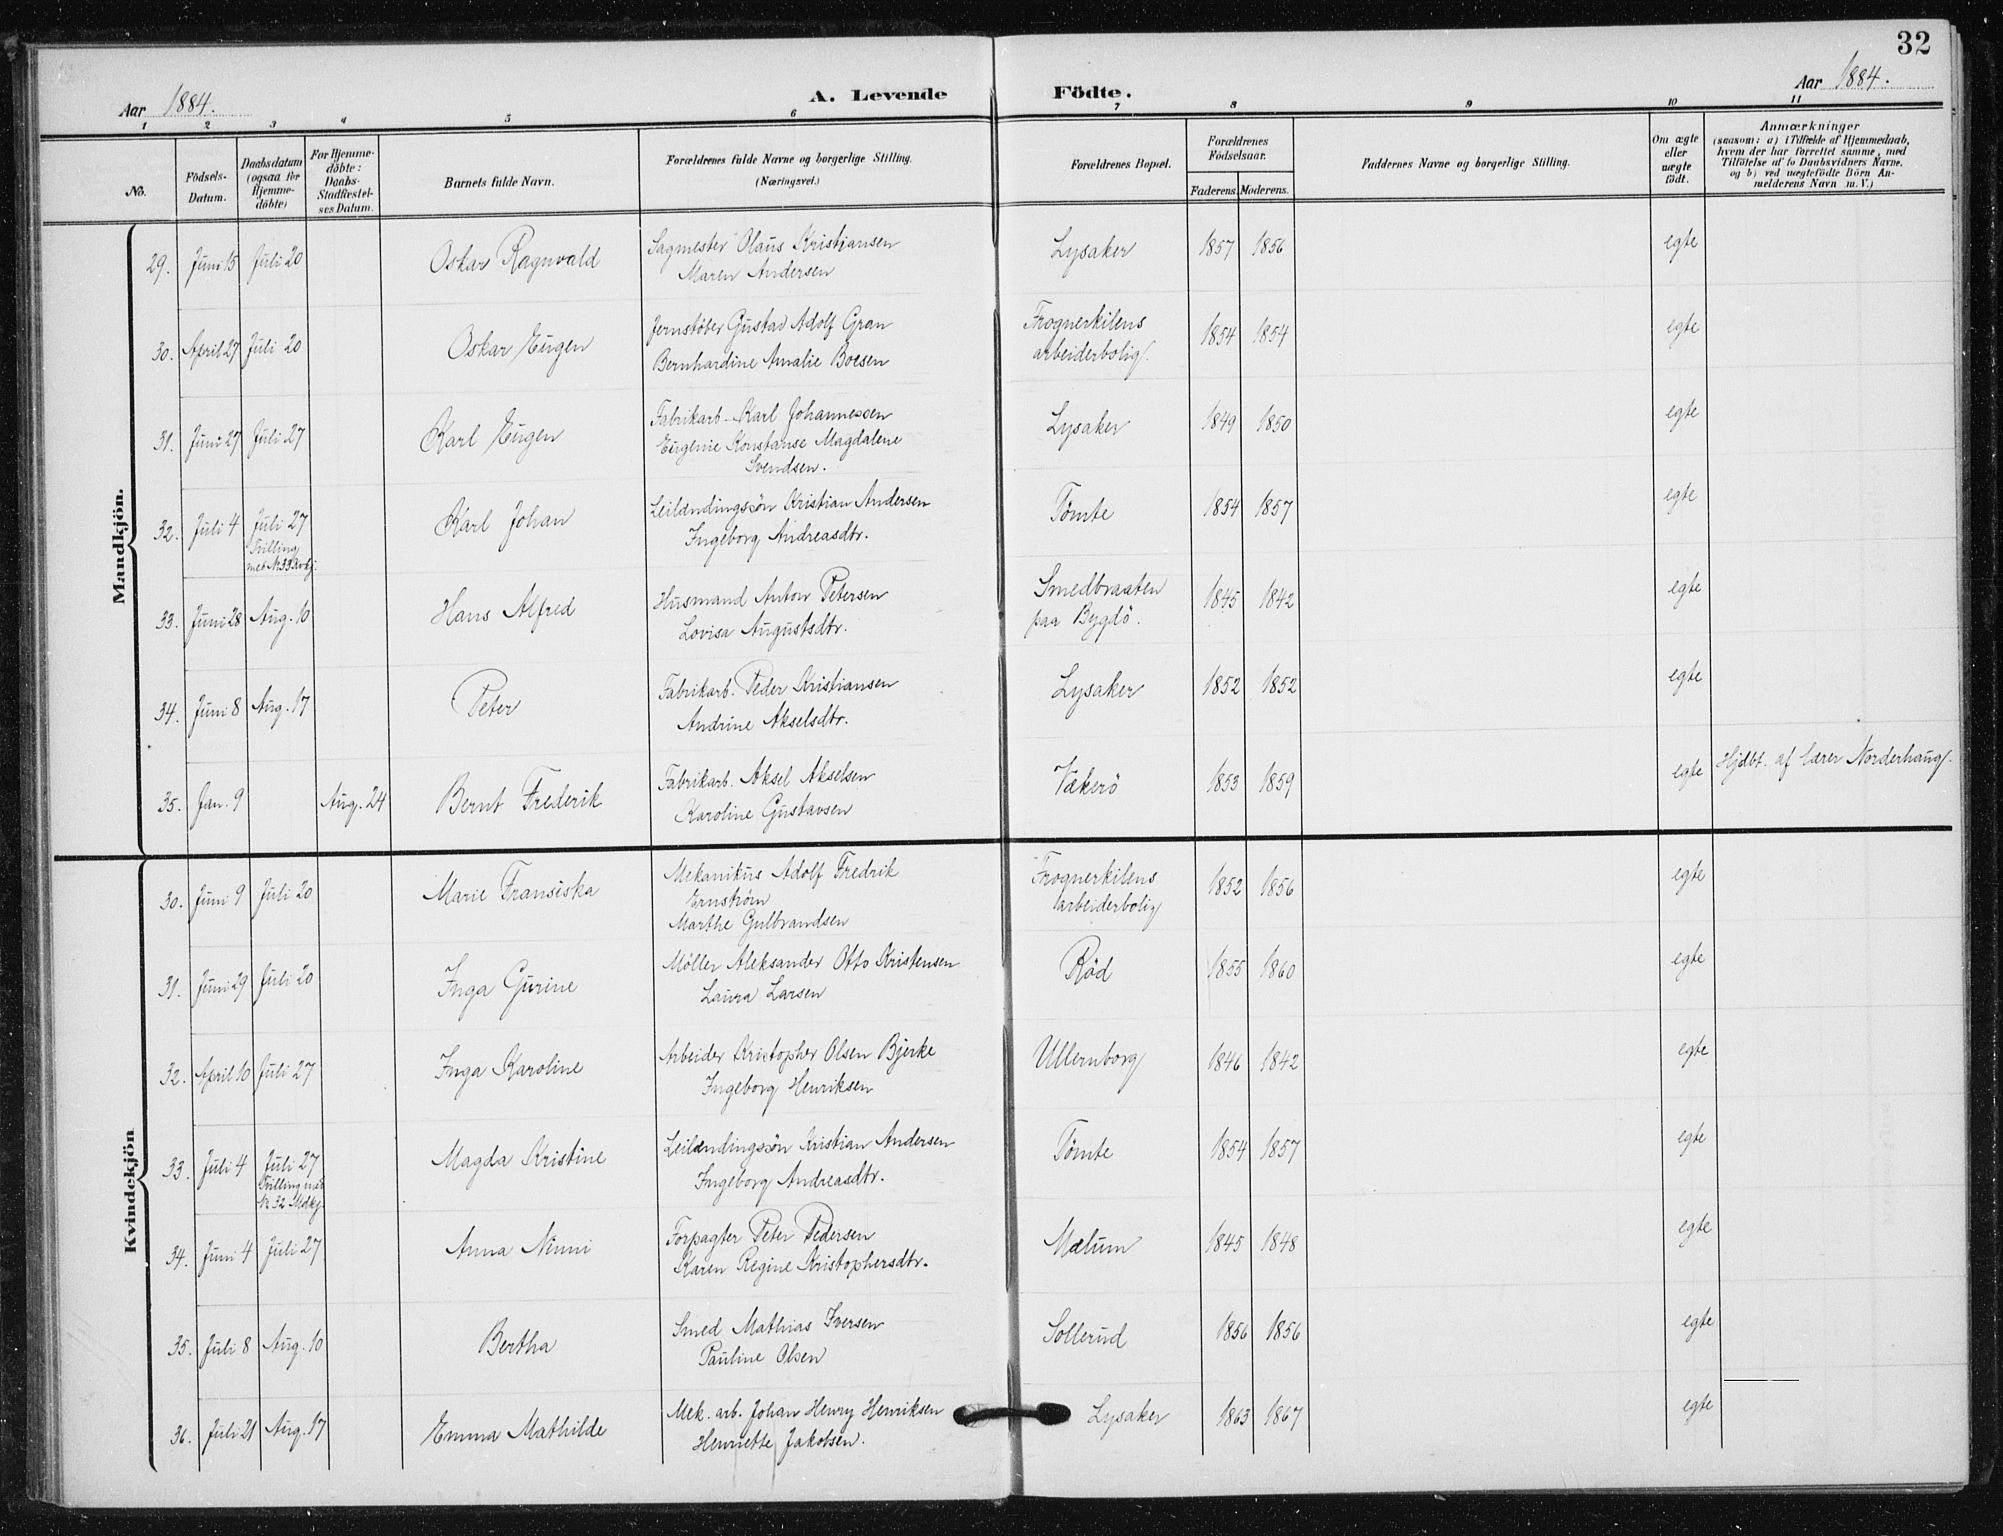 32
Aar 1884.
A. Levende Födte.
Aar 1884.
1 2 3 4 5 6 7 8 9 10 11
No.
Födsels-
Datum.
Daabsdatum
(ogsaa for
Hjemme-
döbte)
For Hjemme-
döbte:
Daabs-
Stadfæstel-
ses Datum.
Barnets fulde Navn.
Forældrenes fulde Navne og borgerlige Stilling.
(Næringsvei.)
Forældrenes Bopæl.
Forældrenes
Födselsaar.
Faderens. Moderens.
Faddernes Navne og borgerlige Stilling.
Om ægte
eller
uægte
født.
Anmærkninger
(saasom: a) i Tilfælde af Hjemmedaab,
hvem der har forrettet samme, med
Tilföielse af to Daabsvidners Navne.
og b) ved uægtefödte Börn An-
melderens Navn m. V.)
Mandkjön.
29. Juni 15 Juli 20 Oskar Ragnvald Sagmester Olaus Kristiansen Lysaker 1857 1856 egte
Maren Andersen
30. April 27 Juli 20 Oskar Eugen Jernstöber Gustav Adolf Gran Frognerkilens 1854 1854 egte
Bernhardine Amalie Boesen arbeiderbolig.
31. Juni 27 Juli 27 Karl Eugen Fabrikarb. Karl Johannessen Lysaker 1849 1850 egte
Eugenie Konstanse Magdalene
Svendsen.
32. Juli 4 Juli 27 Karl Johan Leilændingssön Kristian Andersen Tömte 1854 1857 egte
Tvilling Ingeborg Andreasdtr.
med No 33
33. Juni 28 Aug. 10 Hans Alfred Husmand Anton Petersen Smedbraaten 1845 1842 egte
Lovisa Augustsdtr. paa Bygdö.
34. Juni 8 Aug. 17 Peter Fabrikarb. Peder Kristiansen Lysaker 1852 1852 egte
Andrine Akselsdtr.
35. Jan. 9 Aug. 24 Bernt Frederik Fabrikarb. Aksel Akselsen Vækerö 1853 1859 egte Hjdbt. af lærer Norderhaug.
Karoline Gustavsen
Kvindekjön
30. Juni 9 Juli 20 Marie Fransiska Mekanikus Adolf Fredrik Frognerkilens 1852 1856 egte
Ernström arbeiderbolig
Marthe Gulbrandsen
31. Juni 29 Juli 20 Inga Gurine Möller Aleksander Otto Kristensen Röd 1855 1860 egte
Laura Larsen
32. April 10 Juli 27 Inga Karoline Arbeider Kristopher Olsen Bjerke Ullernborg 1846 1842 egte
Ingeborg Henriksen
33. Juli 4 Juli 27 Magda Kristine Leilændingssön Kristian Andersen Tömte 1854 1857 egte
Tvilling med Ingeborg Andreasdtr.
No 32 Mdkj.
34. Juni 4 Juli 27 Anna Ninni Forpagter Peter Pedersen Mælum 1845 1848 egte
Karen Regine Kristophersdtr.
35. Juli 8 Aug. 10 Bertha Smed Mathias Iversen Sollerud 1856 1856 egte
Pauline Olsen
36. Juli 21 Aug. 17 Emma Mathilde Mek. arb. Johan Henry Henriksen Lysaker 1863 1867 egte
Henriette Jakobsen.